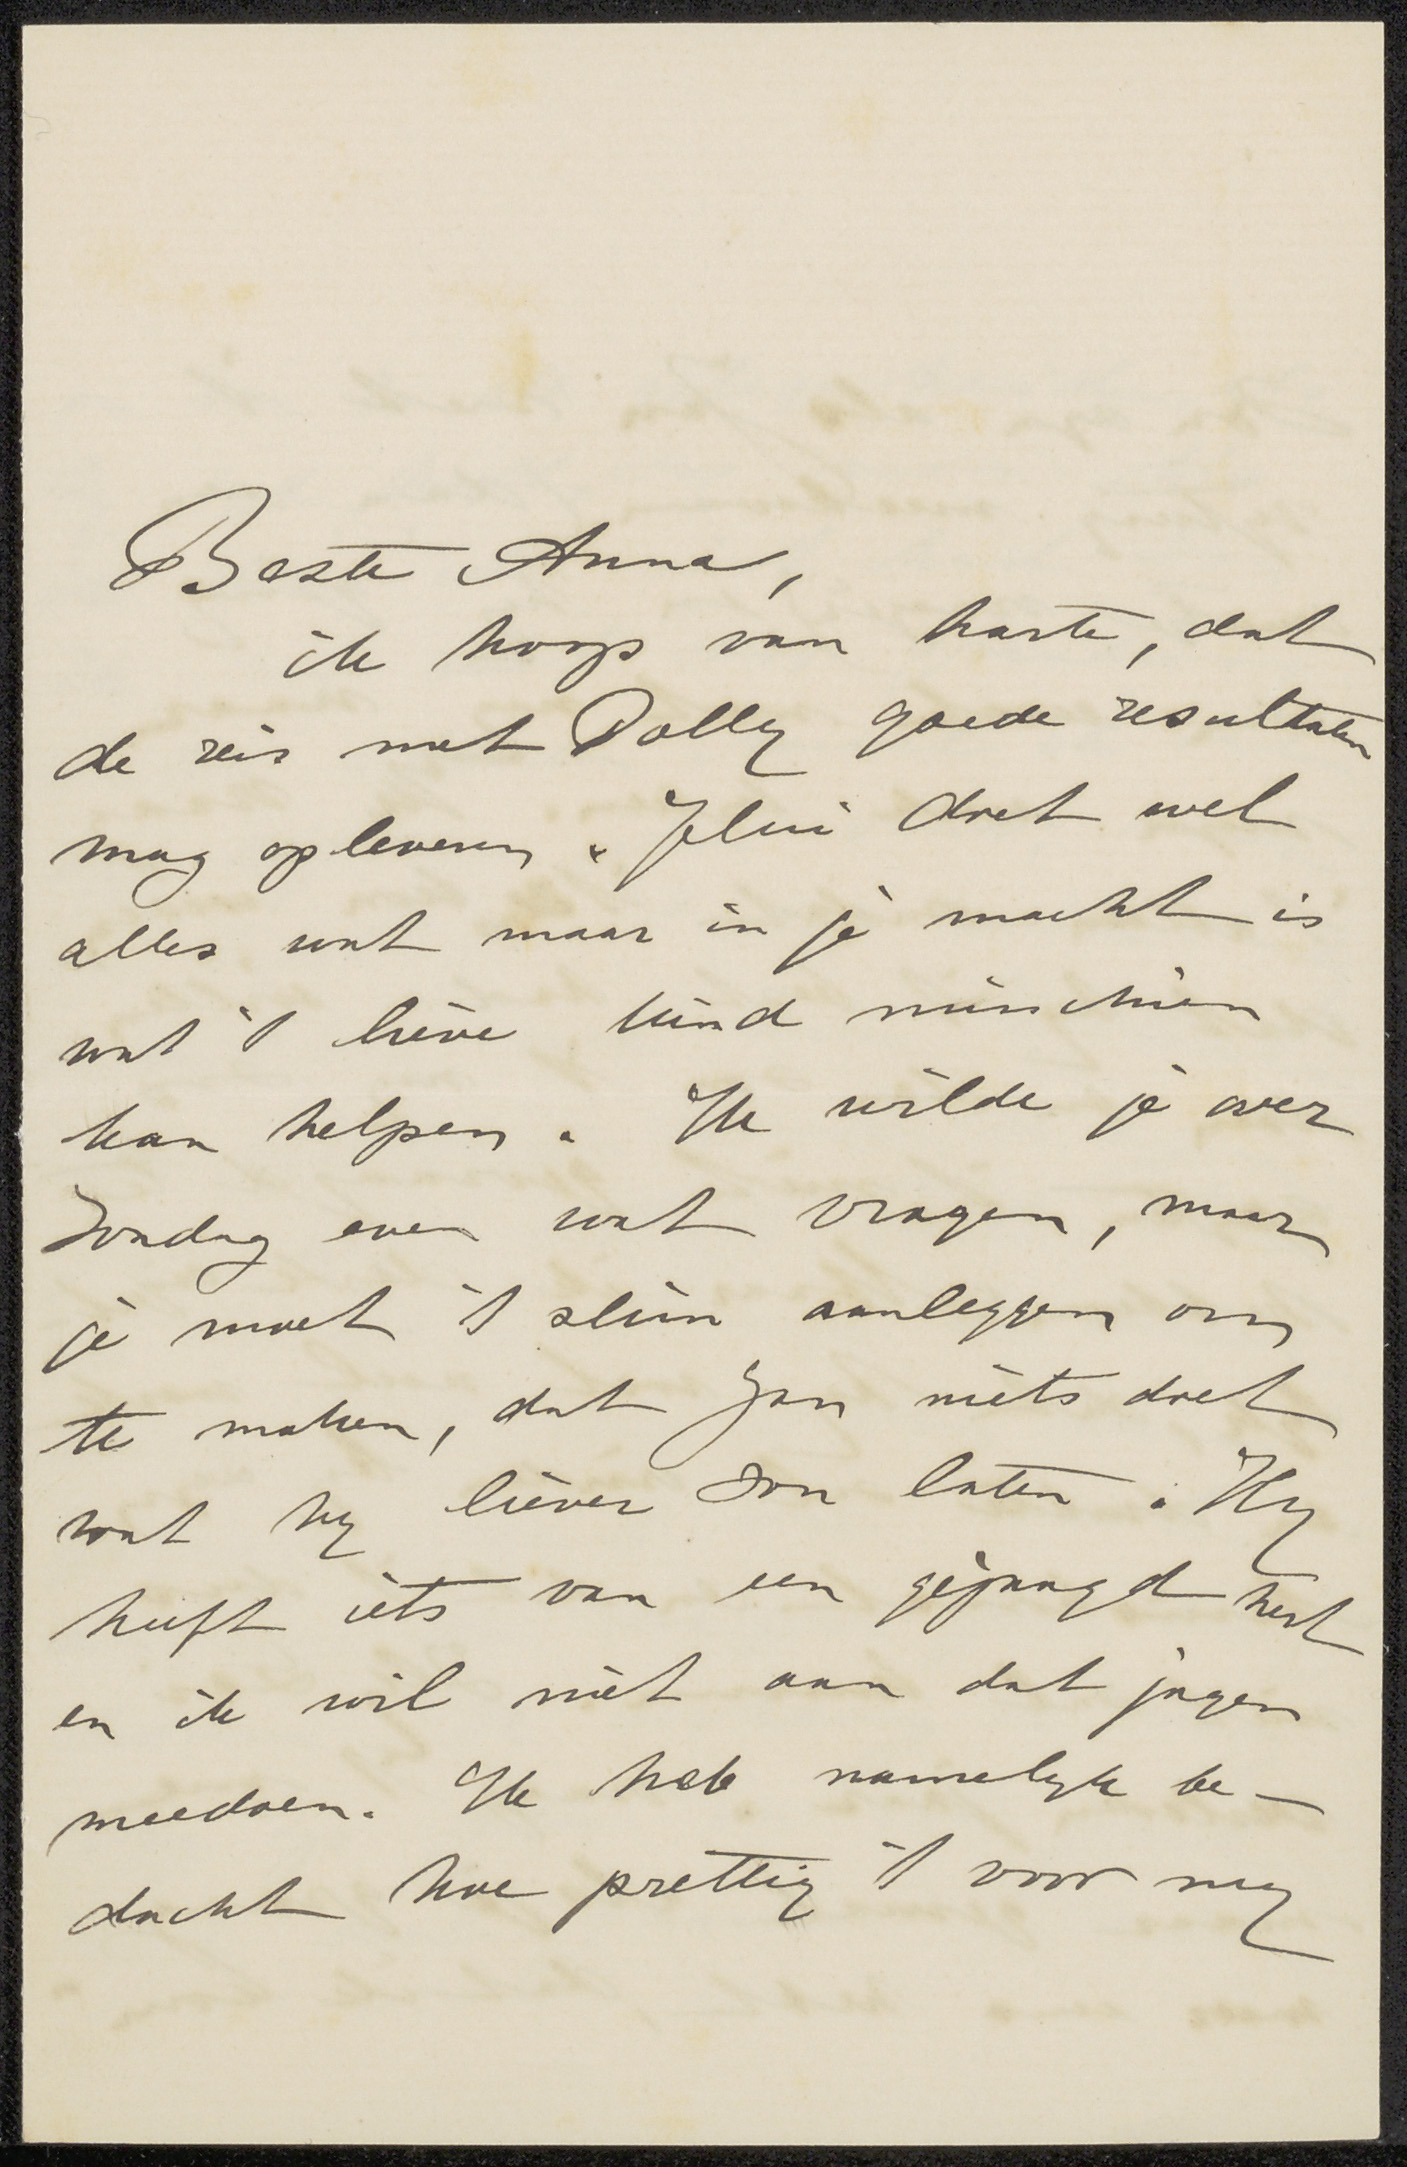 Beste Anna,
ik hoop van harte, dat
de reis met Dolly goede resultaten
mag opleveren. Jelui doet wel
alles wat maar in je macht is
wat 't lieve kind misschien
kan helpen. Ik wilde je over
Zondag even wat vragen, maar
je moet 't slim aanleggen om
te maken, dat Jan niets doet
wat hy liever zou laten. Hy
heeft iets van een gejaagd hert
en ik wil niet aan dat jagen
meedoen. Ik heb namelyk be-
dacht hoe prettig 't voor my